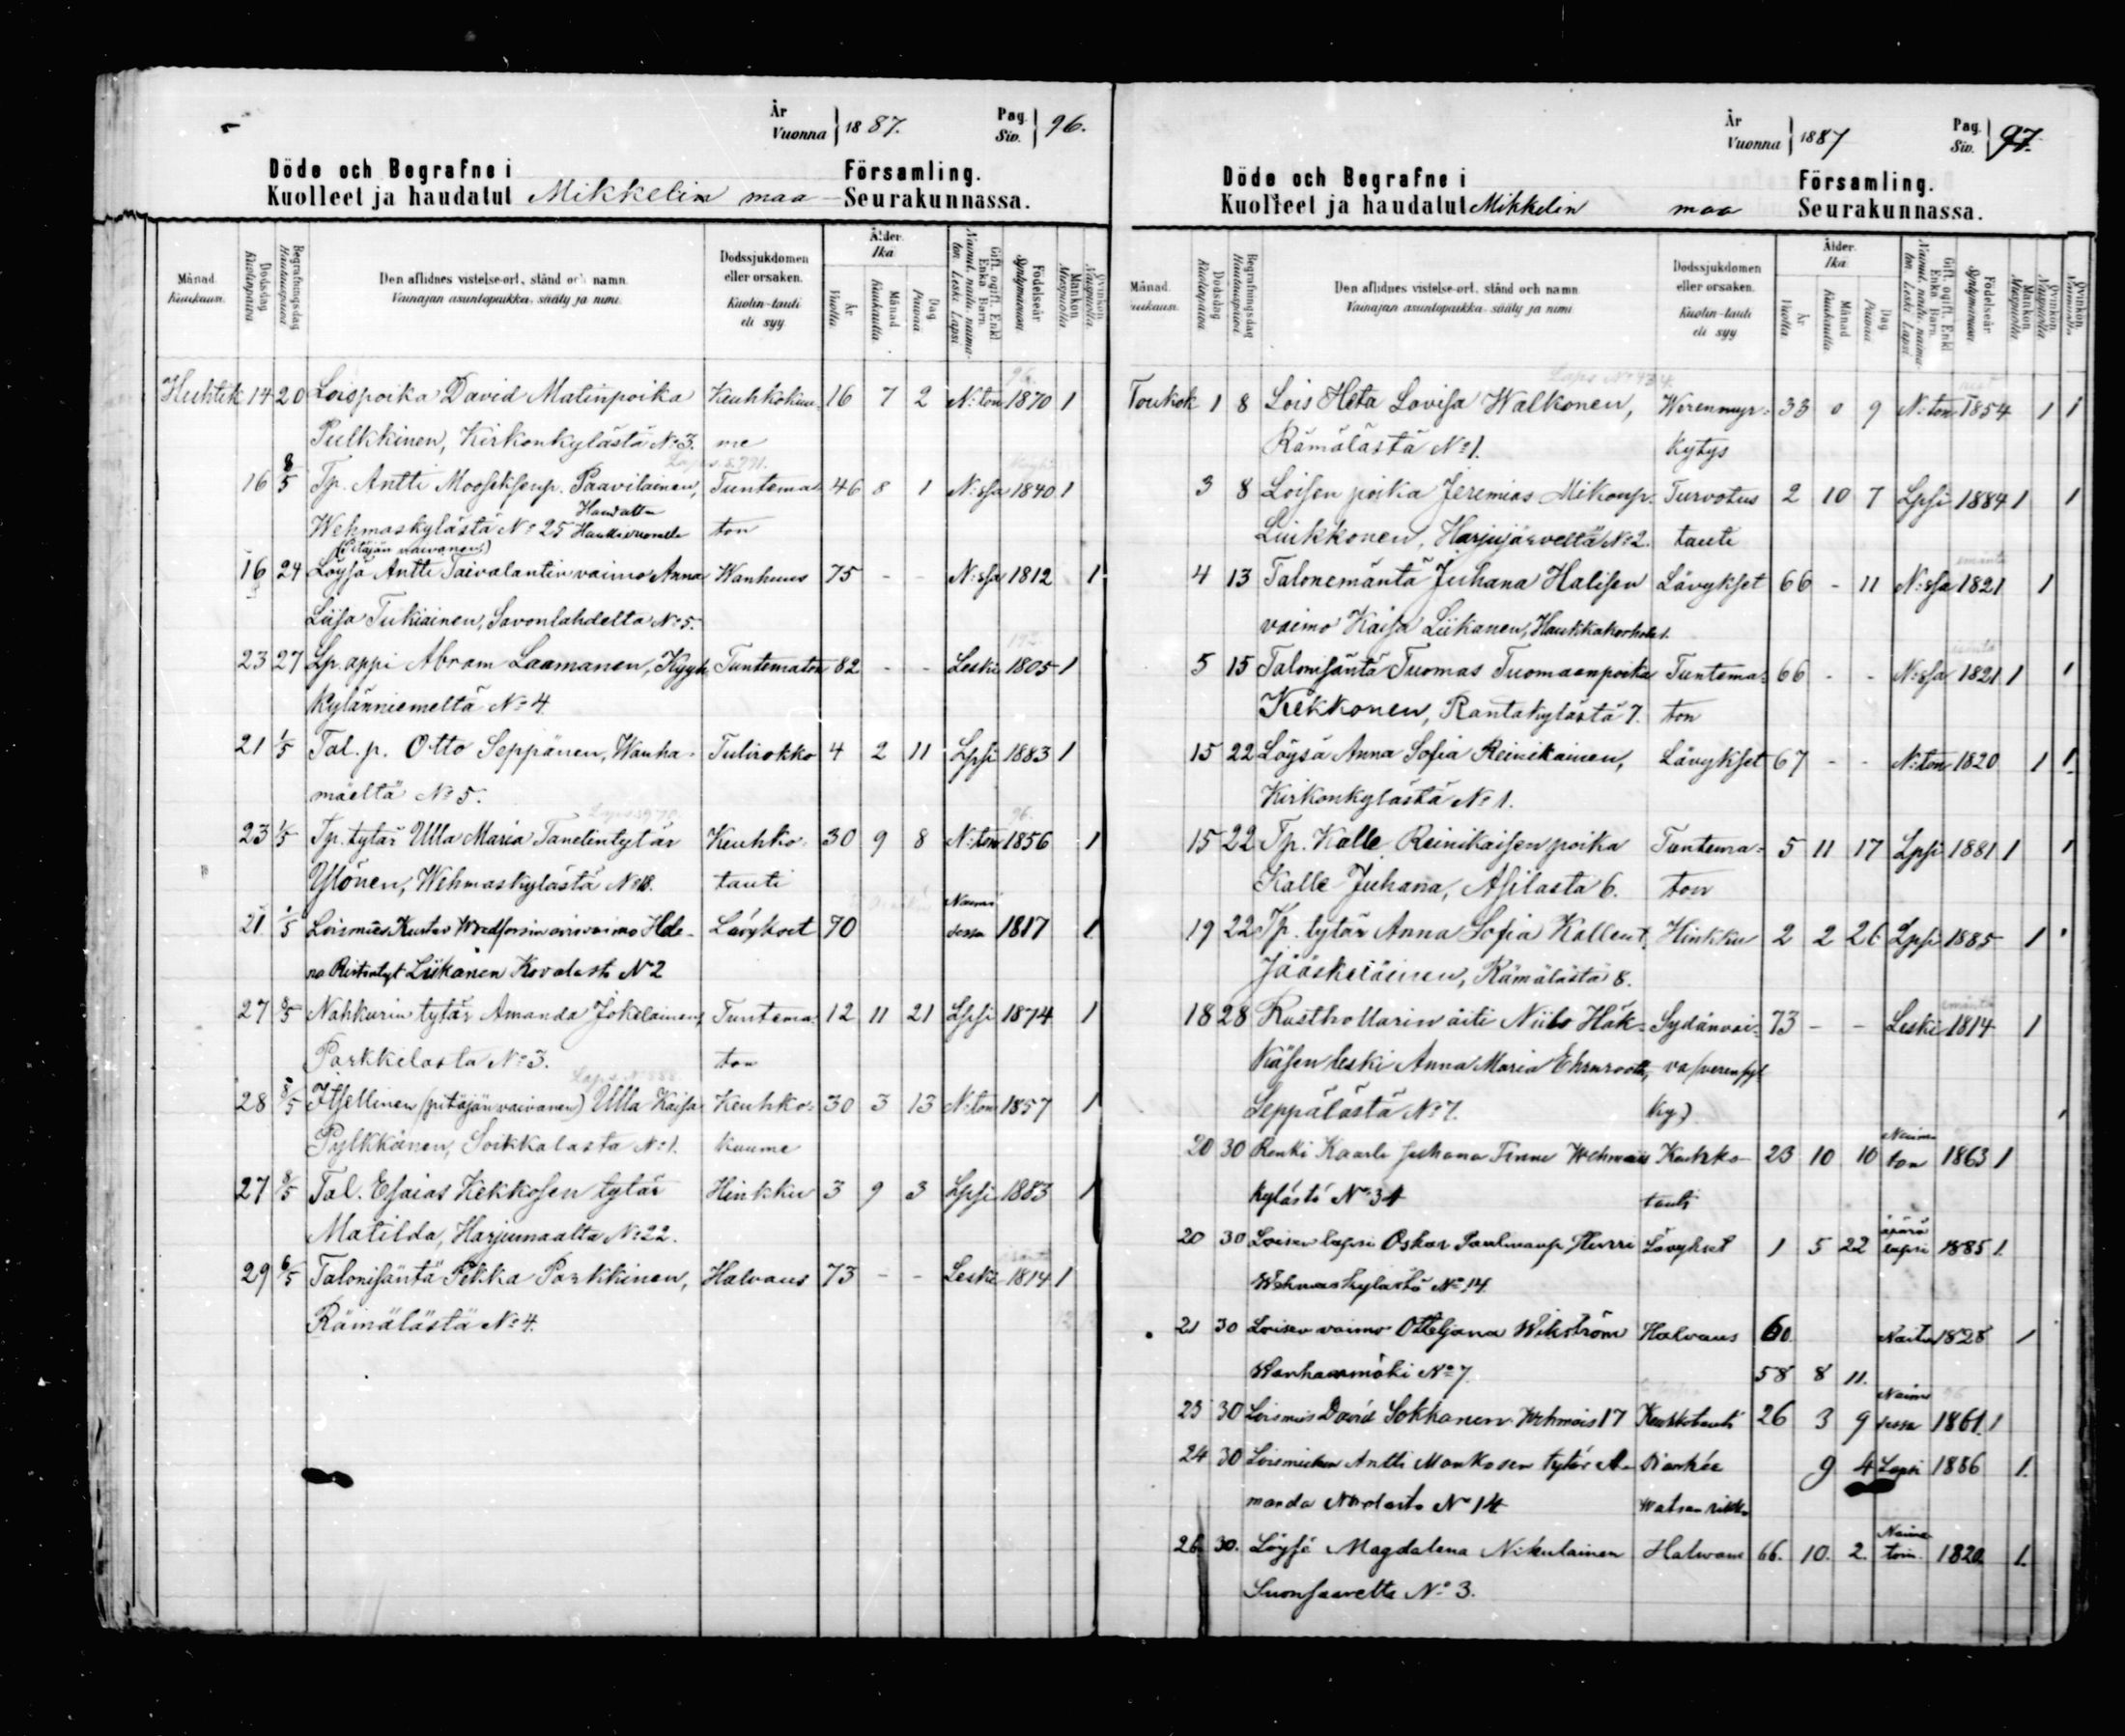 År
Vuonna 1887.
Pag.
Siv. 96.
Döde och Begrafne i Församling.
Kuolleet ja haudatut Mikkelin maa Seurakunnassa.
Månad. Kuukausi.
Dödsdag Kuolinpäivä
Begrafningsdag Hautauspäivä
Den aflidnes vistelse-ort, stånd och namn.
Vainajan asuntopaikka, sääty ja nimi.
Dödssjukdomen eller orsaken.
Kuolin-tauti eli syy.
Ålder. Ikä
År Vuotta.
Månad Kuukautta.
Dag Päivää
Gift, ogift, Enkl. Enka Barn.
Nainut, naitu, naimaton. Leski. Lapsi
Födelseår Syntymävuosi.
Mankön Miespuolta
Qvinkön Naispuolta.
Huhtik 14 20 Loispoika David Matinpoika Keuhkokuu- 16 7 2 N:ton 1870 1
Pulkkinen, Kirkonkylästä No 3. me
16 8/5 Tp. Antti Mooseksenp. Paavilainen, Tuntema- 46 8 1 N:ssa 1840 1
Haudattu
Wehmaskylästä No 25 Haukivuorella ton
(Pitäjän vaivanen)
16 24 Löysä Antti Taivalantin vaimo Anna Wanhuus 75 - - N:ssa 1812 1
Liisa Tukiainen, Savonlahdelta No 5.
23 27 Lp. appi Abram Laamanen, Kyyh- Tuntematon 82 - - Leski 1805 1
kylänniemeltä No 4
21 1/5 Tal. p. Otto Seppänen, Wanha- Tulirokko 4 2 11 Lpsi 1883 1
mäeltä No 5.
23 1/5 Tp. tytär Ulla Maria Tanelintytär Keuhko- 30 9 8 N:ton 1856 1
Ylönen, Wehmaskylästä No 18. tauti
21 1/5 Loismies Kustav Wredforsin vaimo Hele- Lävykset 70 Naimisessa 1817 1
na Ristintyt Liikanen Kovalasti No 2
27 8/5 Nahkurin tytär Amanda Jokelainen, Tuntema- 12 11 21 Lpsi 1874 1
Parkkilasta No 3. ton
28 8/5 Itsellinen (pitäjän vaivanen) Ulla Kaisa Keuhko- 30 3 13 N:ton 1857 1
Pylkkänen, Soikkalasta No 1. kuume
27 8/5 Tal. Esaias Kekkosen tytär Hinkku 3 9 3 Lpsi 1883 1
Matilda, Harjumaalta No 22.
29 6/5 Talonisäntä Pekka Parkkinen, Halvaus 73 - - Leski 1814 1
Rämälästä No 4.
År
Vuonna 1887
Pag.
Siv. 97.
Döde och Begrafne i Församling.
Kuolleet ja haudatut Mikkelin maa Seurakunnassa.
Månad. Kuukausi.
Dödsdag Kuolinpäivä
Begrafningsdag Hautauspäivä
Den aflidnes vistelse-ort, stånd och namn
Vainajan asuntopaikka, sääty ja nimi
Dödssjukdomen eller orsaken.
Kuolin-tauti eli syy
Ålder. Ikä
År Vuotta.
Månad Kuukautta
Dag Päivää
Gift, ogift, Enkl. Enka Barn.
Nainut, naitu, naimaton. Leski Lapsi
Födelseår Syntymävuosi
Mankön Miespuolta
Qvinkön Naispuolta
Qvinkön
Toukok 1 8 Lois Heta Lovisa Walkonen, Werenmyr- 33 0 9 N:ton 1854 1 1
Rämälästä No 1. kytys
3 8 Loisen poika Jeremias Mikonp. Turvotus 2 10 7 Lpsi 1884 1 1
Liukkonen, Harjujärveltä No 2. tauti
4 13 Talonemäntä Juhana Halisen Lävykset 66 - 11 N:ssa 1821 1
vaimo Kaisa Liikanen, Haukkakorhola 1.
5 15 Talonisäntä Tuomas Tuomaanpoika Tuntema- 66 - - N:ssa 1821 1 1
Kekkonen, Rantakylästä 7. ton
15 22 Löysä Anna Sofia Reinikainen, Lävykset 67 - - N:ton 1820 1 1
Kirkonkylästä No 1.
15 22 Tp. Kalle Reinikaisen poika Tuntema- 5 11 17 Lpsi 1881 1 1
Kalle Juhana, Asilasta 6. ton
19 22 Tp. tytär Anna Sofia Kallent. Hinkku 2 2 26 Lpsi 1885 1
Jääskeläinen, Rämälästä 8.
18 28 Rusthollarin äiti Niilo Häk- Sydänvai- 73 - - Leski 1814 1
kisen leski Anna Maria Ehrnrooth,
Seppälästä No 7. ky)
20 30 Renki Kaarle Juhana Finne Wehmais Keuhko- 23 10 10 Naimaton 1863 1
kylästä No 34 tauti
20 30 Loisen lapsi Oskar Paulinanp Hurri Lävykset 1 5 22 äpärä lapsi 1885 1.
Wehmaskylästä No 14.
21 30 Loisen vaimo Otteljana Wikström Halvaus 60 Naitu 1828 1
Wanhamäki No 7 58 8 11.
23 30 Loismies David Sokkanen Wehmais 17 Keuhkotauti 26 3 9 Naimisessa 1861. 1
24 30 Loismiehen Antti Monkosen tytär A- Diarhée 9 4 Lapsi 1886 1.
manda No 14
26. 30. Löysä Magdalena Nikulainen Halwaus 66. 10. 2. Naimatoin. 1820. 1.
Suonsaarella No 3.